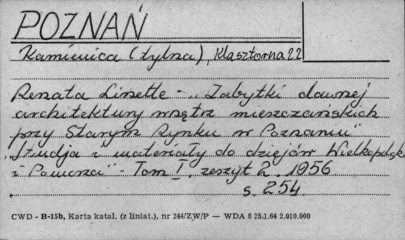 POZNAŃ
Kamienica (tylna), Klasztorna 22
Renata Linette - „Zabytki dawnej
architektury wnętrz mieszczańskich
przy Starym Rynku w Poznaniu"
„Studja i materiały do dziejów Wielkopolski
i Pomorza" - Tom I. zeszyt 2. 1956
s. 254.
CWD - B-15b, Karta katal. (z liniat.), nr 244/ZW/P — WDA 8 25.1.64 2.010.000